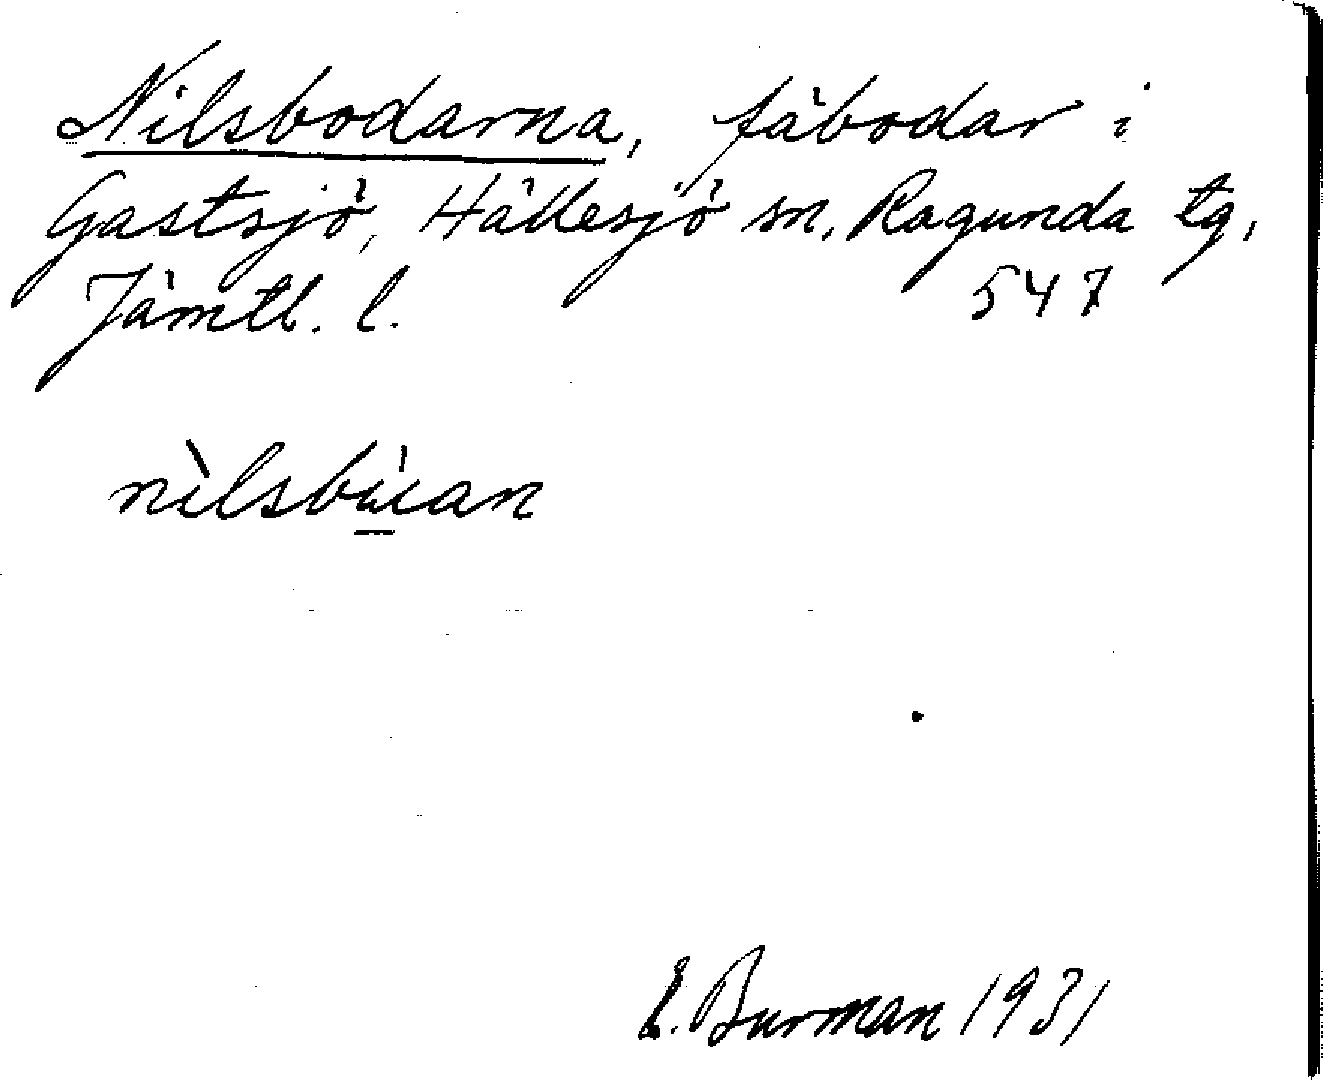 Nilsbodarna, fäbodar i
Gastsjö, Hällesjö sn, Ragunda tg,
Jämtl. l. 547
nìlsbú̲an
E. Burman 1931